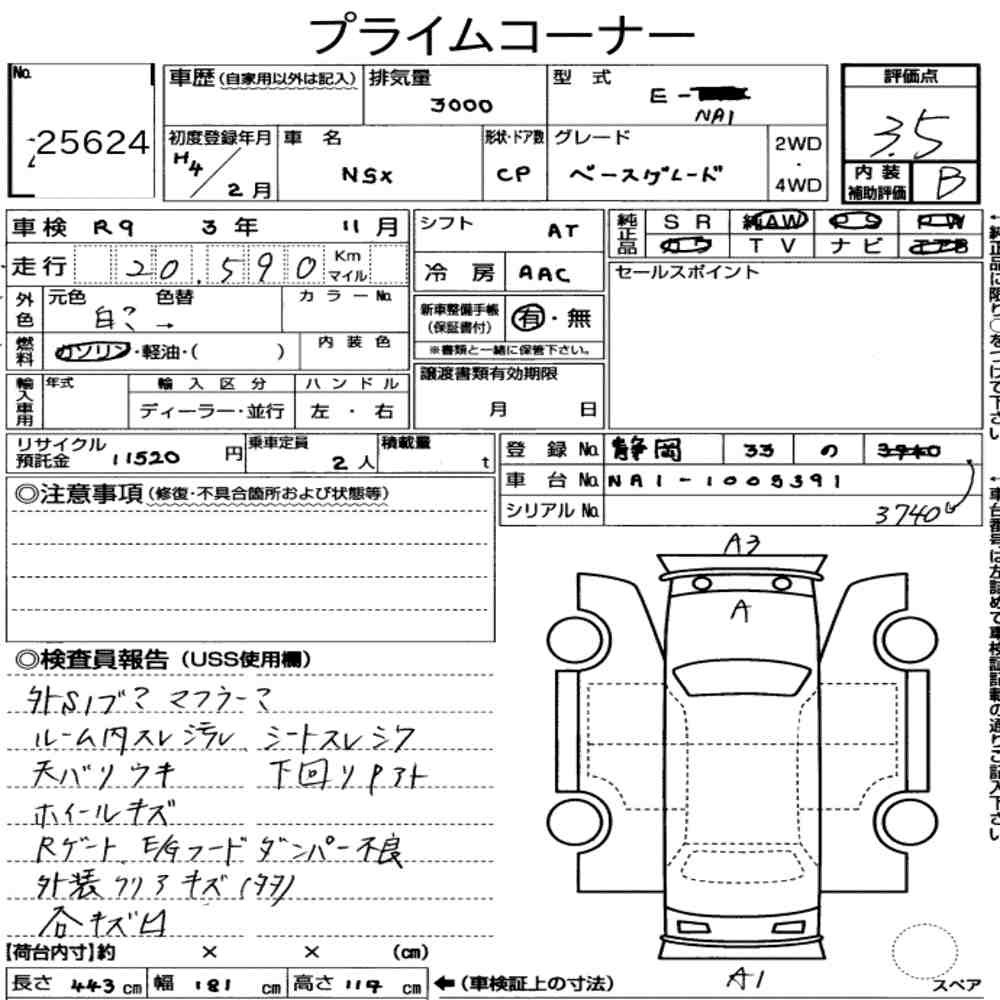 プライムコーナー
No. 25624
車歴(自家用以外は記入) 排気量 3000 型式 E- NA1
評価点 3.5
初度登録年月 H4/2月 車名 NSX 形状・ドア数 CP グレード ベースグレード 2WD・4WD
内装補助評価 B
車検 R9 3年 11月 シフト AT 純正品 SR 純AW PS PW
走行 20,590 Km マイル 冷房 AAC TV ナビ エアB
外色 元色 白? 色替 → カラーNo.
新車整備手帳(保証書付) 有・無
※書類と一緒に保管下さい。
セールスポイント
燃料 ガソリン・軽油・( ) 内装色
輸入車用 年式 輸入区分 ディーラー・並行 ハンドル 左・右
譲渡書類有効期限 月 日
リサイクル預託金 11520円 乗車定員 2人 積載量 t
登録No. 静岡 33 の 3740
車台No. NA1-1005391
シリアルNo.
◎注意事項(修復・不具合箇所および状態等)
A3
A
A1
◎検査員報告(USS使用欄)
外S1ブ? マフラー?
ルーム内スレ汚レ シートスレシワ
天バリウキ 下回りPアト
ホイールキズ
Rゲート、E/Gフードダンパー不良
外装クリアキズ(タタ)
各キズ凹
【荷台内寸】約 × × (cm)
長さ 443cm 幅 181cm 高さ 117cm ←(車検証上の寸法)
スペア
←純正品に限り○をつけて下さい
←車台番号は左詰めで車検証記載の通りご記入下さい